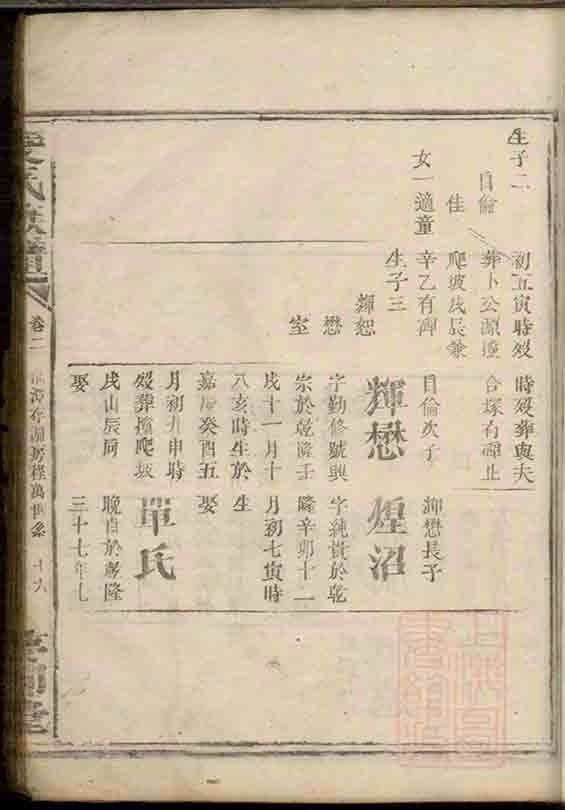 生子二
目倫
佳
女一適童
初五寅時歿
葬卜公源邊
爬坡戌辰兼
辛乙有碑
生子三
輝恕
懋
室
時歿葬與夫
合塚有碑止
目倫次子
輝懋
字勤修號興
宗於乾隆壬
戌十一月十
八亥時生於
嘉慶癸酉五
月初九申時
歿葬爬坡
戌山辰向
娶
輝懋長子
煌沼
字純貴於乾
隆辛卯十二
月初七寅時
生
娶
單氏
晚自於乾隆
三十七年七
氏族譜
卷二
十六